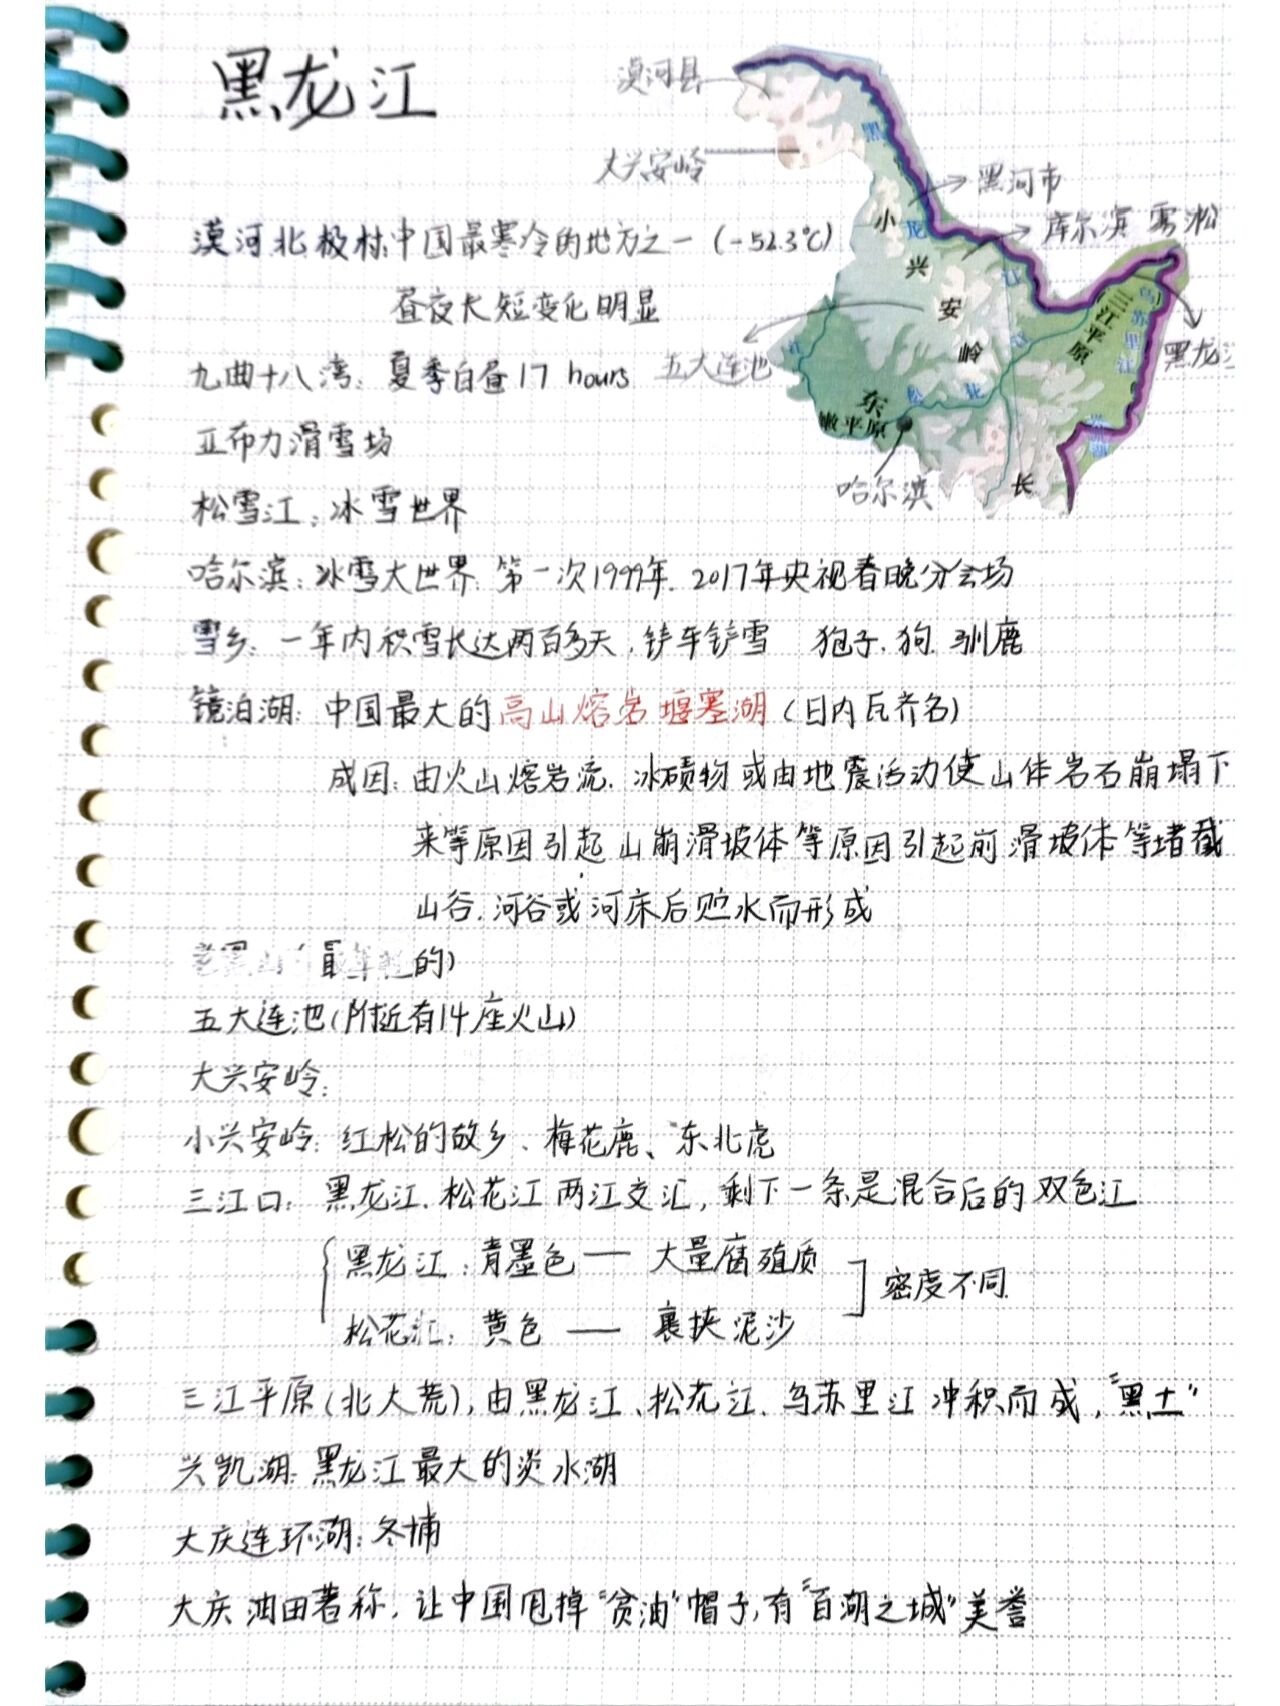 黑龙江
漠河县
大兴安岭
黑河市
库尔滨 雾凇
黑
龙
江
小
兴
安
岭
三江平原
乌苏里江
黑龙江
五大连池
江
松
花
江
东
嫩平原
兴凯湖
哈尔滨
长
漠河北极村:中国最寒冷的地方之一 (-52.3℃)
昼夜长短变化明显
九曲十八湾: 夏季白昼17 hours
亚布力滑雪场
松雪江: 冰雪世界
哈尔滨: 冰雪大世界: 第一次1999年. 2017年央视春晚分会场
雪乡: 一年内积雪长达两百多天, 铲车铲雪 狍子. 狗. 驯鹿
镜泊湖: 中国最大的高山熔岩堰塞湖 (日内瓦齐名)
成因: 由火山熔岩流. 冰碛物或由地震活动使山体岩石崩塌下
来等原因引起山崩滑坡体等原因引起崩滑坡体等堵截
山谷. 河谷或河床后贮水而形成
老黑山 最年轻的)
五大连池(附近有14座火山)
大兴安岭:
小兴安岭: 红松的故乡、梅花鹿、东北虎
三江口: 黑龙江. 松花江两江交汇, 剩下一条是混合后的双色江
黑龙江: 青墨色 — 大量腐殖质
密度不同
松花江: 黄色 — 裹挟泥沙
三江平原(北大荒), 由黑龙江、松花江、乌苏里江冲积而成, "黑土"
兴凯湖: 黑龙江最大的淡水湖
大庆连环湖: 冬捕
大庆油田著称, 让中国甩掉"贫油"帽子, 有"百湖之城"美誉